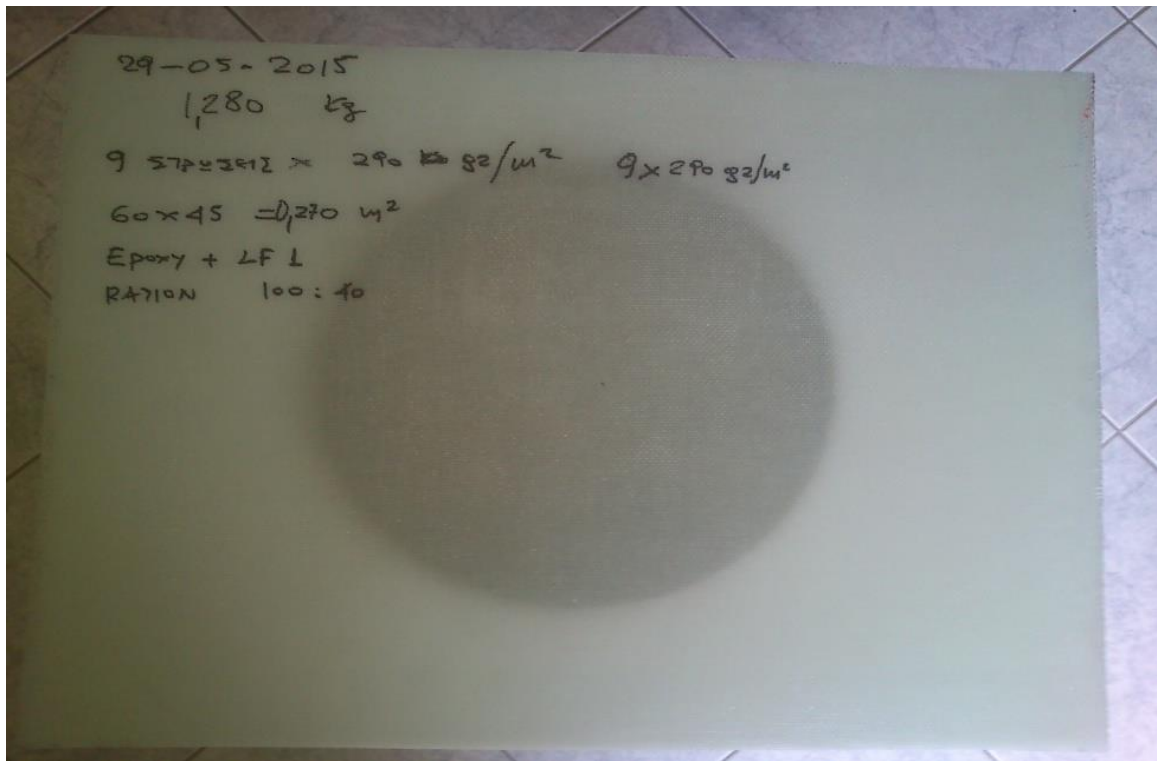 29-05-2015
1,280 kg
9 ΣΤΡΩΣΕΙΣ × 290 gr/m² 9×290 gr/m²
60×45 =0,270 m²
EPOXY + LF 1
RATION 100:40